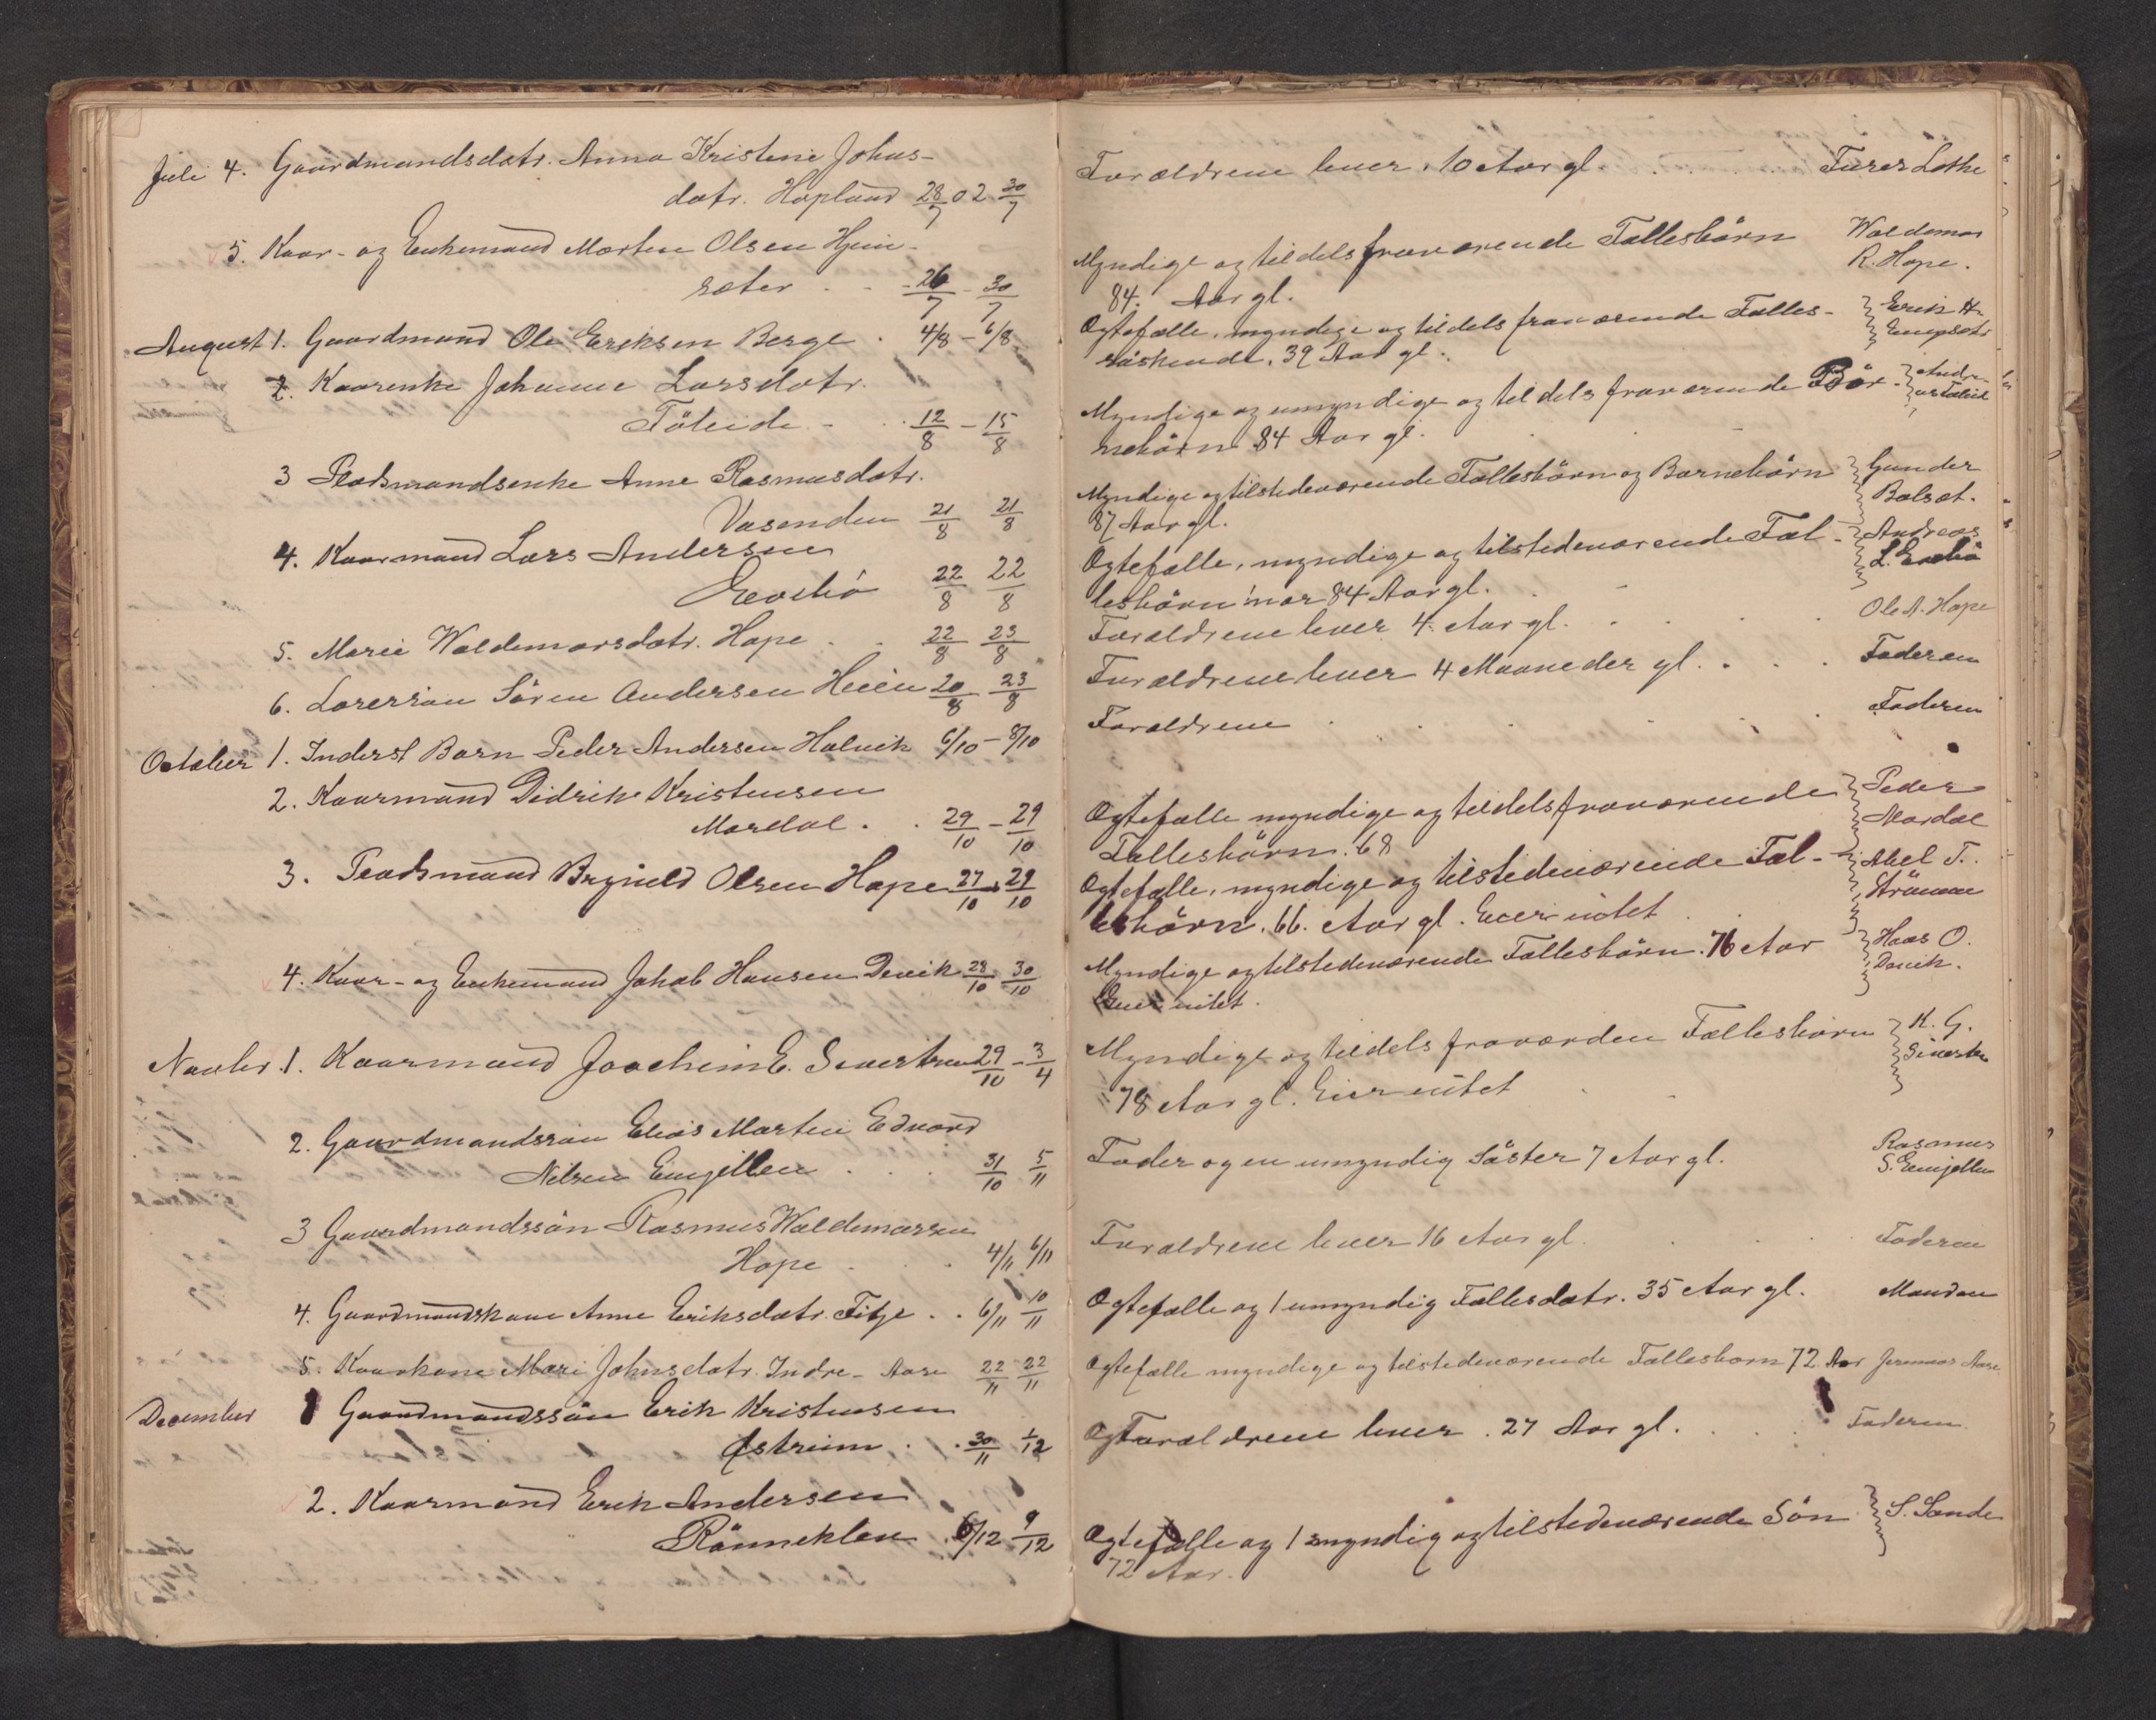 Juli 4. Gaardmandsdatr. Anna Kristine Johns-
datr. Hopland 28/7 02 30/7
5. Kaar- og Enkemand Morten Olsen Hjem-
sæter . . 26/7 - 30/7
August 1. Gaardmand Ole Eriksen Berge . 4/8 - 6/8
2. Kaarenke Johanne Larsdatr.
Föleide - . 12/8 - 15/8
3 Pladsmandsenke Anne Rasmusdatr.
Vasenden 21/8 21/8
4. Kaarmand Lars Andersen
22/8 22/8
5. Marie Waldemarsdatr. Hope . . 22/8 23/8
6. Sören Andersen Heien 20/8 23/8
October 1. Inderst Barn Peder Andersen Holvik 6/10 - 8/10
2. Kaarmand Didrik Kristensen
Mardal . . 29/10 - 29/10
3. Pladsmand Brynild Olsen Hope 27/10 29/10
4. Kaar- og Enkemand Jakob Hansen Devik 28/10 30/10
Novbr. 1. Kaarmand Joachim E. Sivertsen 29/10 - 3/4
2. Gaardmandssön Elias Martin Edvard
Nilsen Emjellen . . . 31/10 5/11
3 Gaardmandssön Rasmus Waldemarsen
Hope . . . 4/11 6/11
4. Gaardmandskone Anne Eriksdatr. Fitje . . 6/11 10/11
5. Kaarkone Mari Johnsdatr. Indre- Aase 22/11 22/11
December 1 Gaardmandssön Erik Kristensen
Østreim . . 30/11 1/12
2. Kaarmand Erik Andersen
Rönneklev . 6/12 9/12
Forældrene lever. 10 Aar gl. Lothe
Myndige og tildels fraværende Fællesbörn Waldemar
R. Hope.
84. Aar gl.
Ægtefælle, myndige og tildels fraværende Fælles- Erik A.
söskende. 39 Aar gl.
Myndige og umyndige og tildels fraværende Bör- Andre-
as Föleide
nebörn 84 Aar gl.
Myndige og tilstedeværende Fællesbörn og Barnebörn Gunder
Balsæt.
87 Aar gl.
Ægtefælle, myndige og tilstedeværende Fæl- Andreas
L.
lesbörn nær 84 Aar gl.
Forældrene lever 4. Aar gl. . . . Ole A. Hope
Forældrene lever 4 Maaneder gl. . . . Faderen
Forældrene . . . . . Faderen
Ægtefælle myndige og tildels fraværende Peder
Mardal
Fællesbörn. 68
Ægtefælle, myndige og tilstedeværende Fæl- Abel T.
Strömme
lesbörn. 66. Aar gl. Eier intet
Myndige og tilstedeværende Fællesbörn. 76 Aar Hans O.
Devik.
Eier intet.
Myndige og tildels fraværden Fællesbörn K. G.
Sivertsen
78 Aar gl. Eier intet
Fader og en umyndig Söster 7 Aar gl. Rasmus
S. Emjellen
Forældrene lever 16 Aar gl. . . . Faderen
Ægtefælle og 1 umyndig Fællesdatr. 35 Aar gl. Manden
Ægtefælle myndige og tilstedeværende Fællesbörn 72 Aar Aase
Forældrene lever. 27 Aar gl. . . . Faderen
Ægtefælle og 1 myndig og tilstedeværende Sön S. Sande
72 Aar.